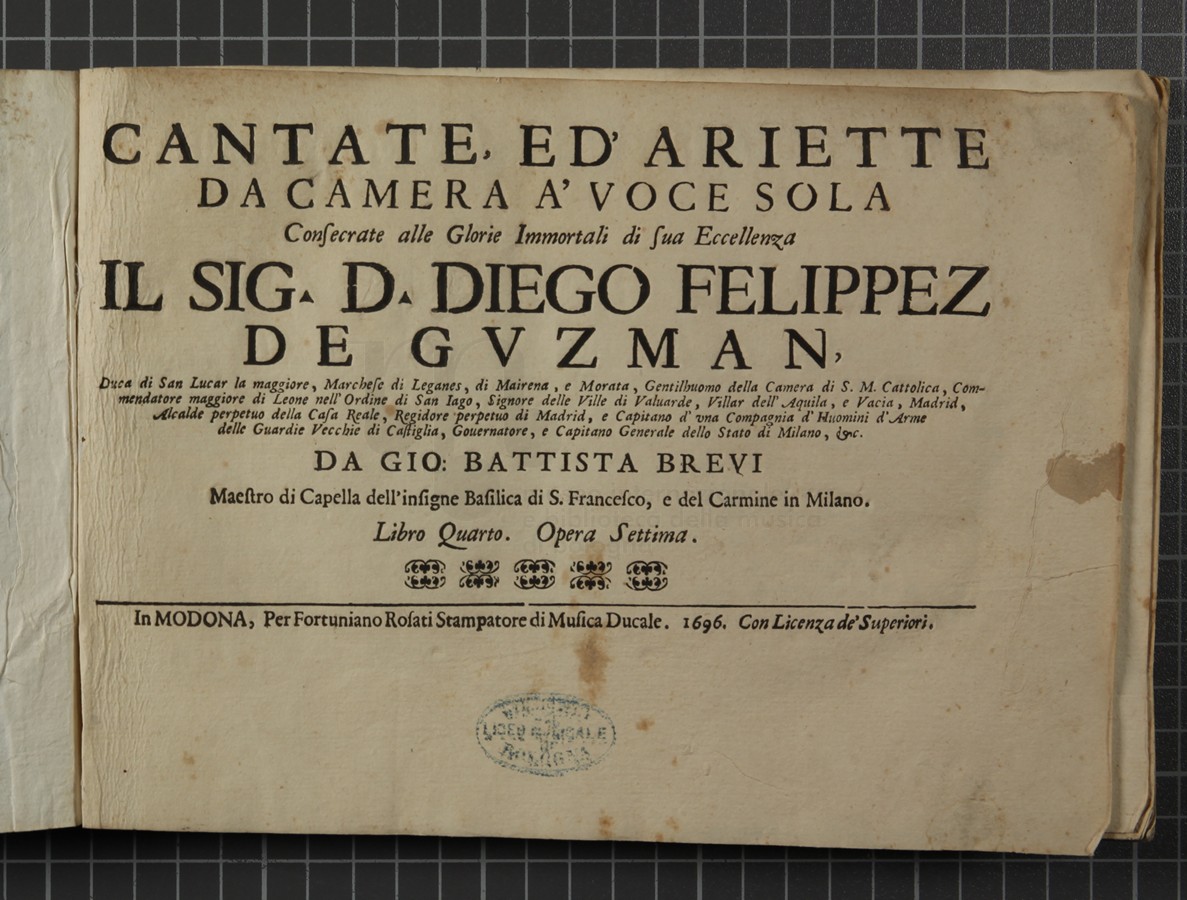 CANTATE, ED' ARIETTE
DA CAMERA A' VOCE SOLA
Conſecrate alle Glorie Immortali di ſua Eccellenza
IL SIG. D. DIEGO FELIPPEZ
DE GVZMAN,
Duca di San Lucar la maggiore, Marcheſe di Leganes, di Mairena, e Morata, Gentilhuomo della Camera di S. M. Cattolica, Com-
mendatore maggiore di Leone nell' Ordine di San Iago, Signore delle Ville di Valuarde, Villar dell' Aquila, e Vacia, Madrid,
Alcalde perpetuo della Caſa Reale, Regidore perpetuo di Madrid, e Capitano d' vna Compagnia d' Huomini d' Arme
delle Guardie Vecchie di Caſtiglia, Gouernatore, e Capitano Generale dello Stato di Milano, &c.
DA GIO: BATTISTA BREVI
Maeſtro di Capella dell'inſigne Baſilica di S. Franceſco, e del Carmine in Milano.
Libro Quarto. Opera Settima.
In MODONA, Per Fortuniano Roſati Stampatore di Muſica Ducale. 1696. Con Licenza de' Superiori.
LICEO MUSICALE
BOLOGNA